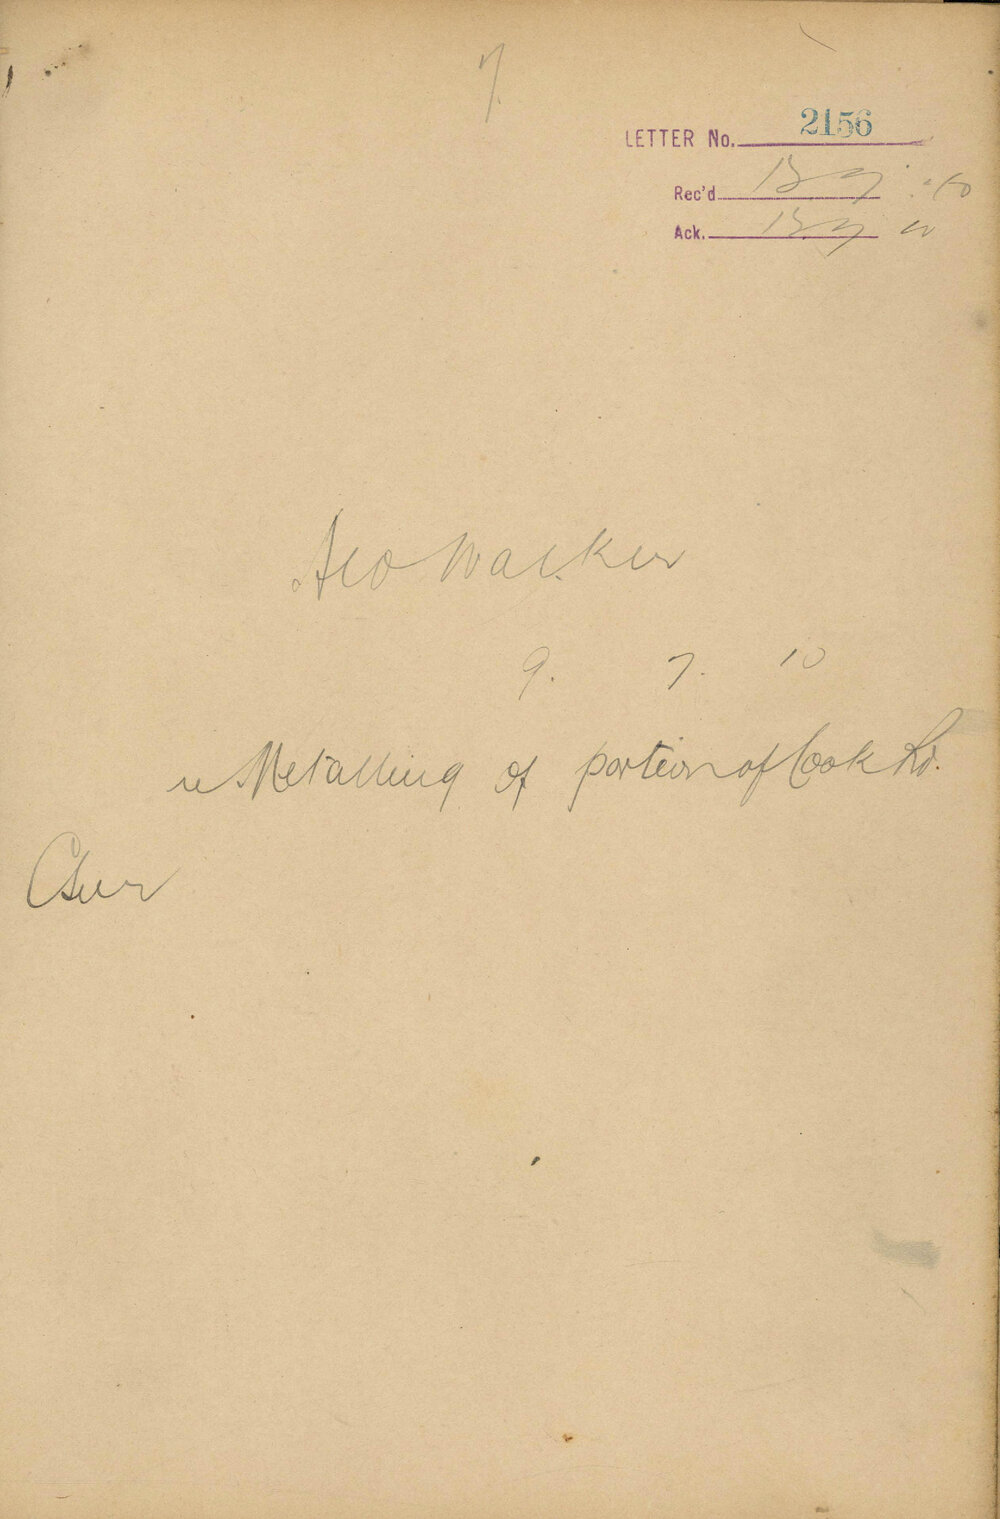 7.
LETTER No. 2156
Rec'd 13 7 10
Ack. 13 7 10
Geo Walker
9. 7. 10
re Metalling of portion of Cook Rd.